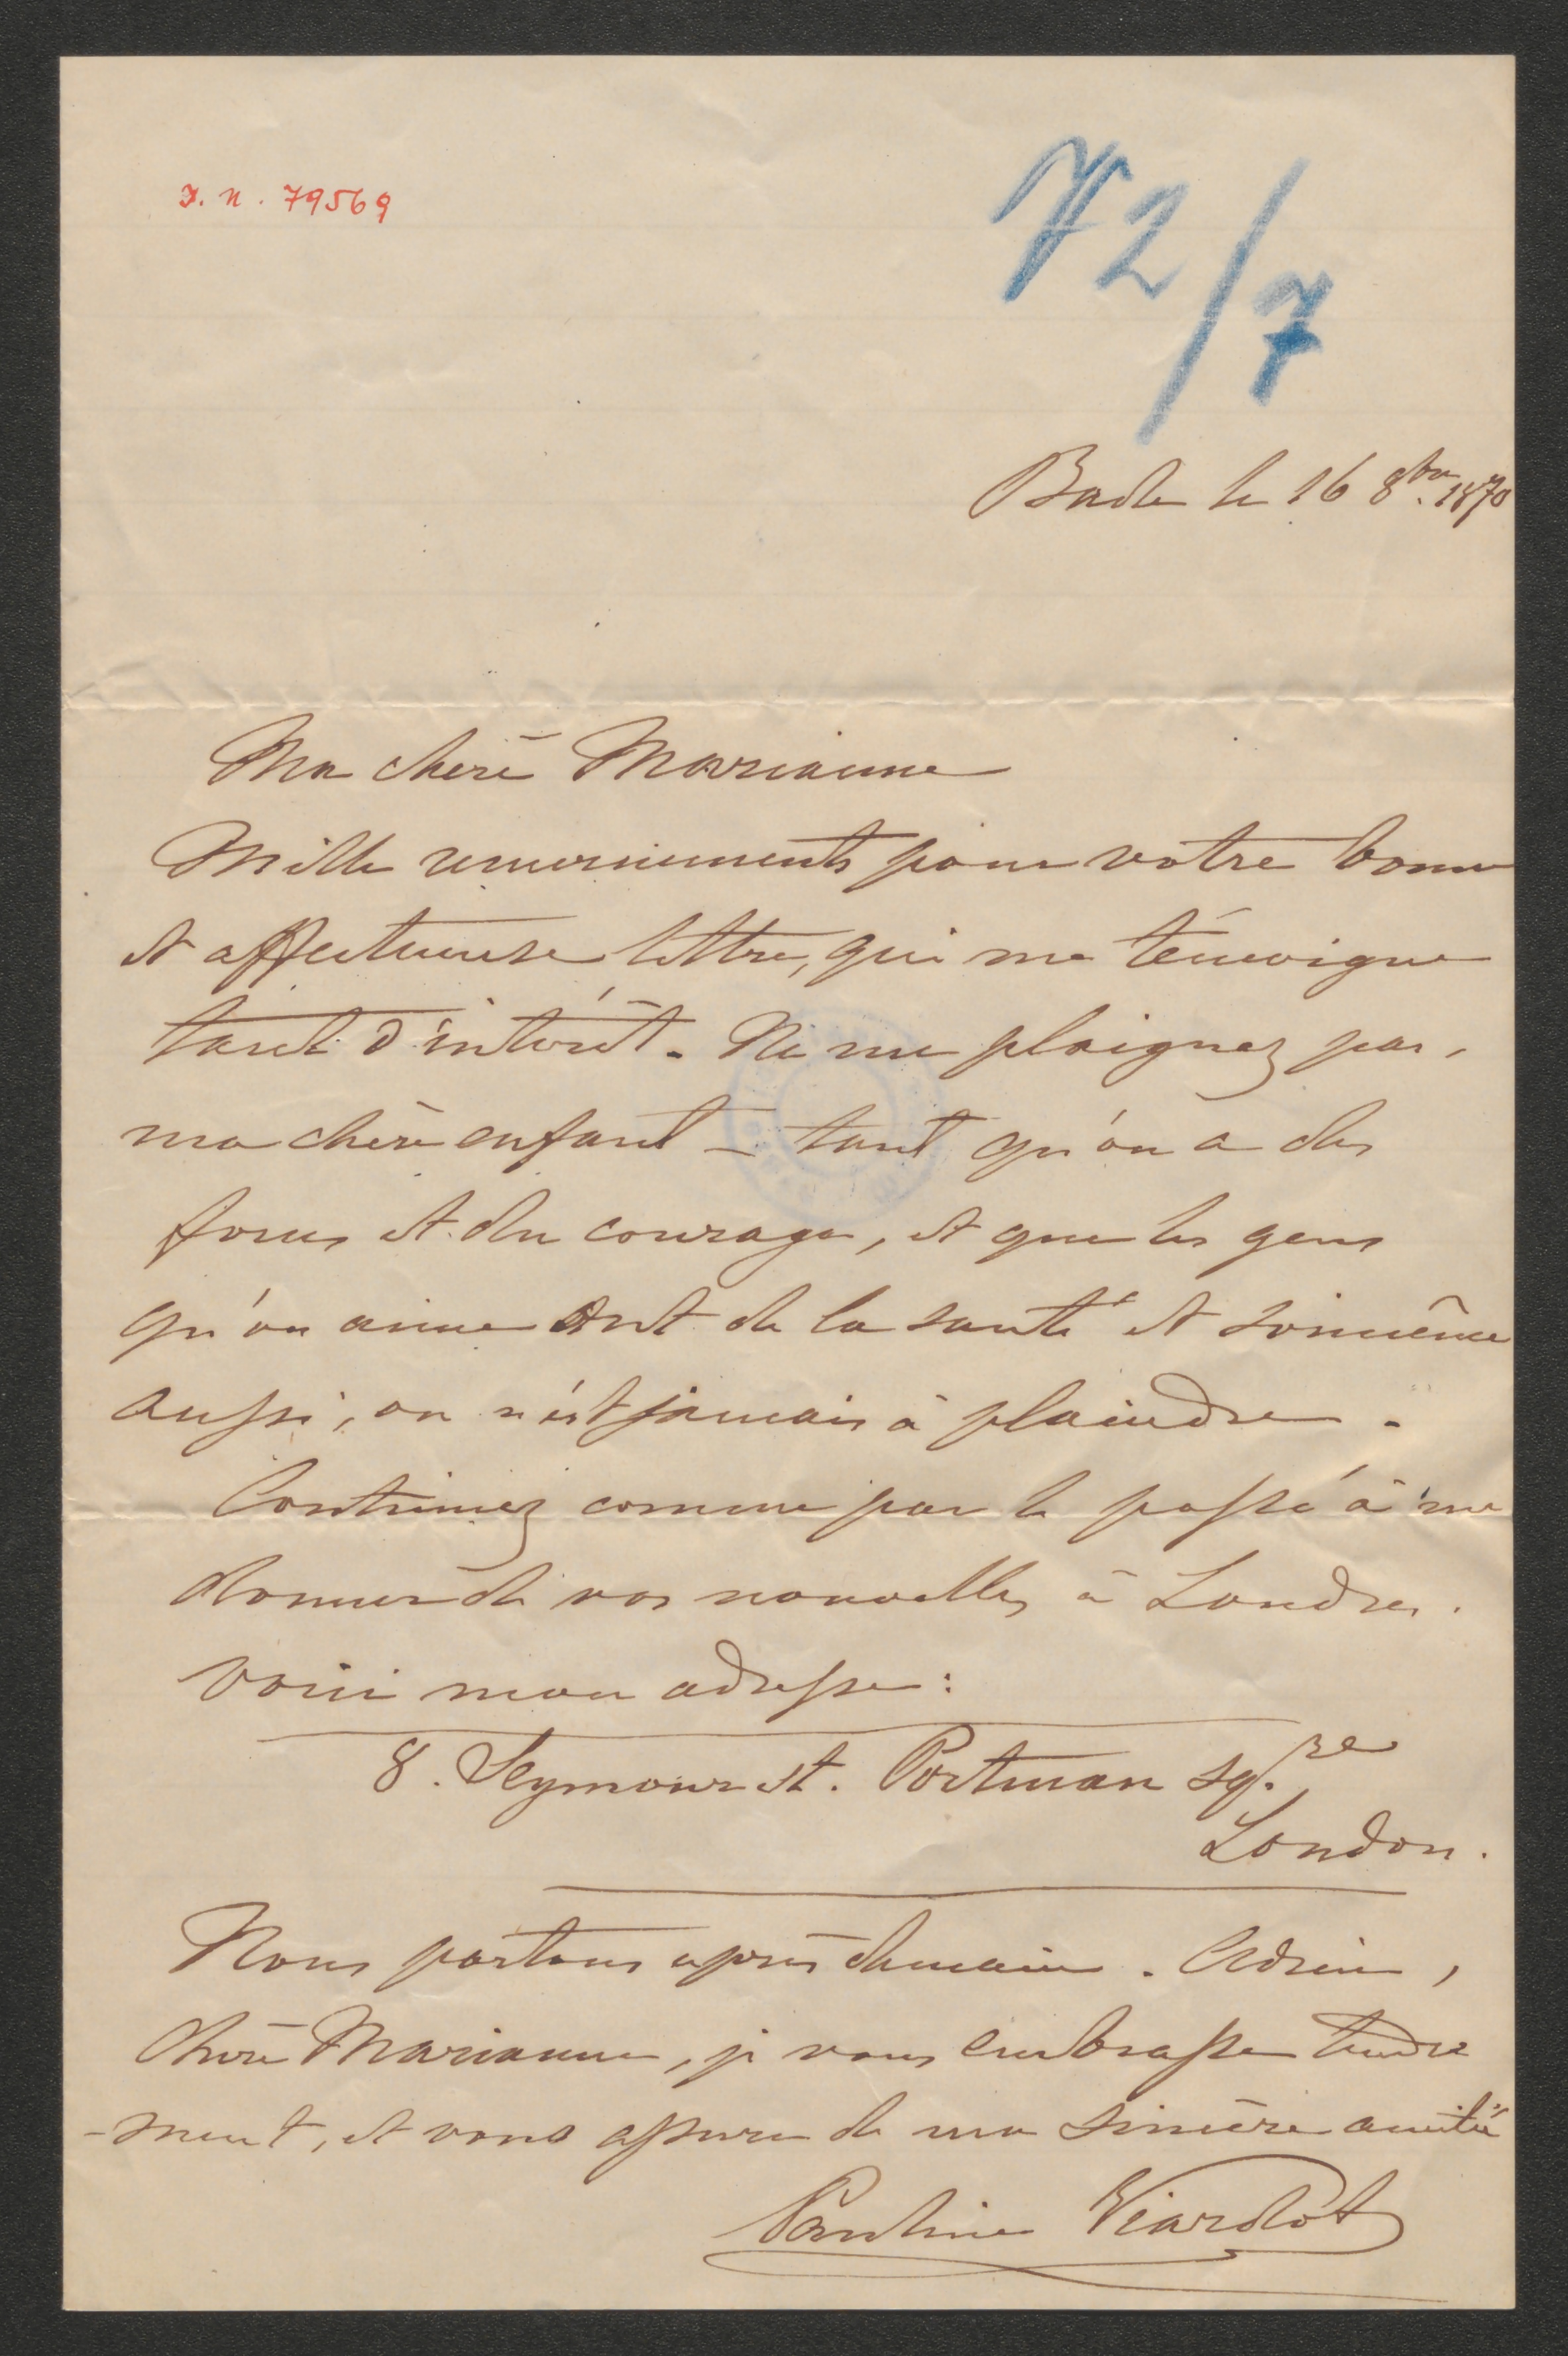 I. N. 79569
72/7
Bade le 16 8bre. 1870
Ma chère Marianne
Mille remerciements pour votre bonne
et affectueuse lettre, qui me témoigne
tant d'intérêt. Ne me plaignez pas,
ma chère enfant – tant qu'on a des
forces et du courage, et que les gens
qu'on aime ont de la santé et soimême
aussi, on n'est jamais à plaindre.
Continuez comme par le passé à me
donner de vos nouvelles à Londres.
Voici mon adresse:
8. Seymour st. Portman sq.re
London.
Nous partons après demain. Adieu,
chère Marianne, je vous embrasse tendre
-ment, et vous assure de ma sincère amitié
Pauline Viardot